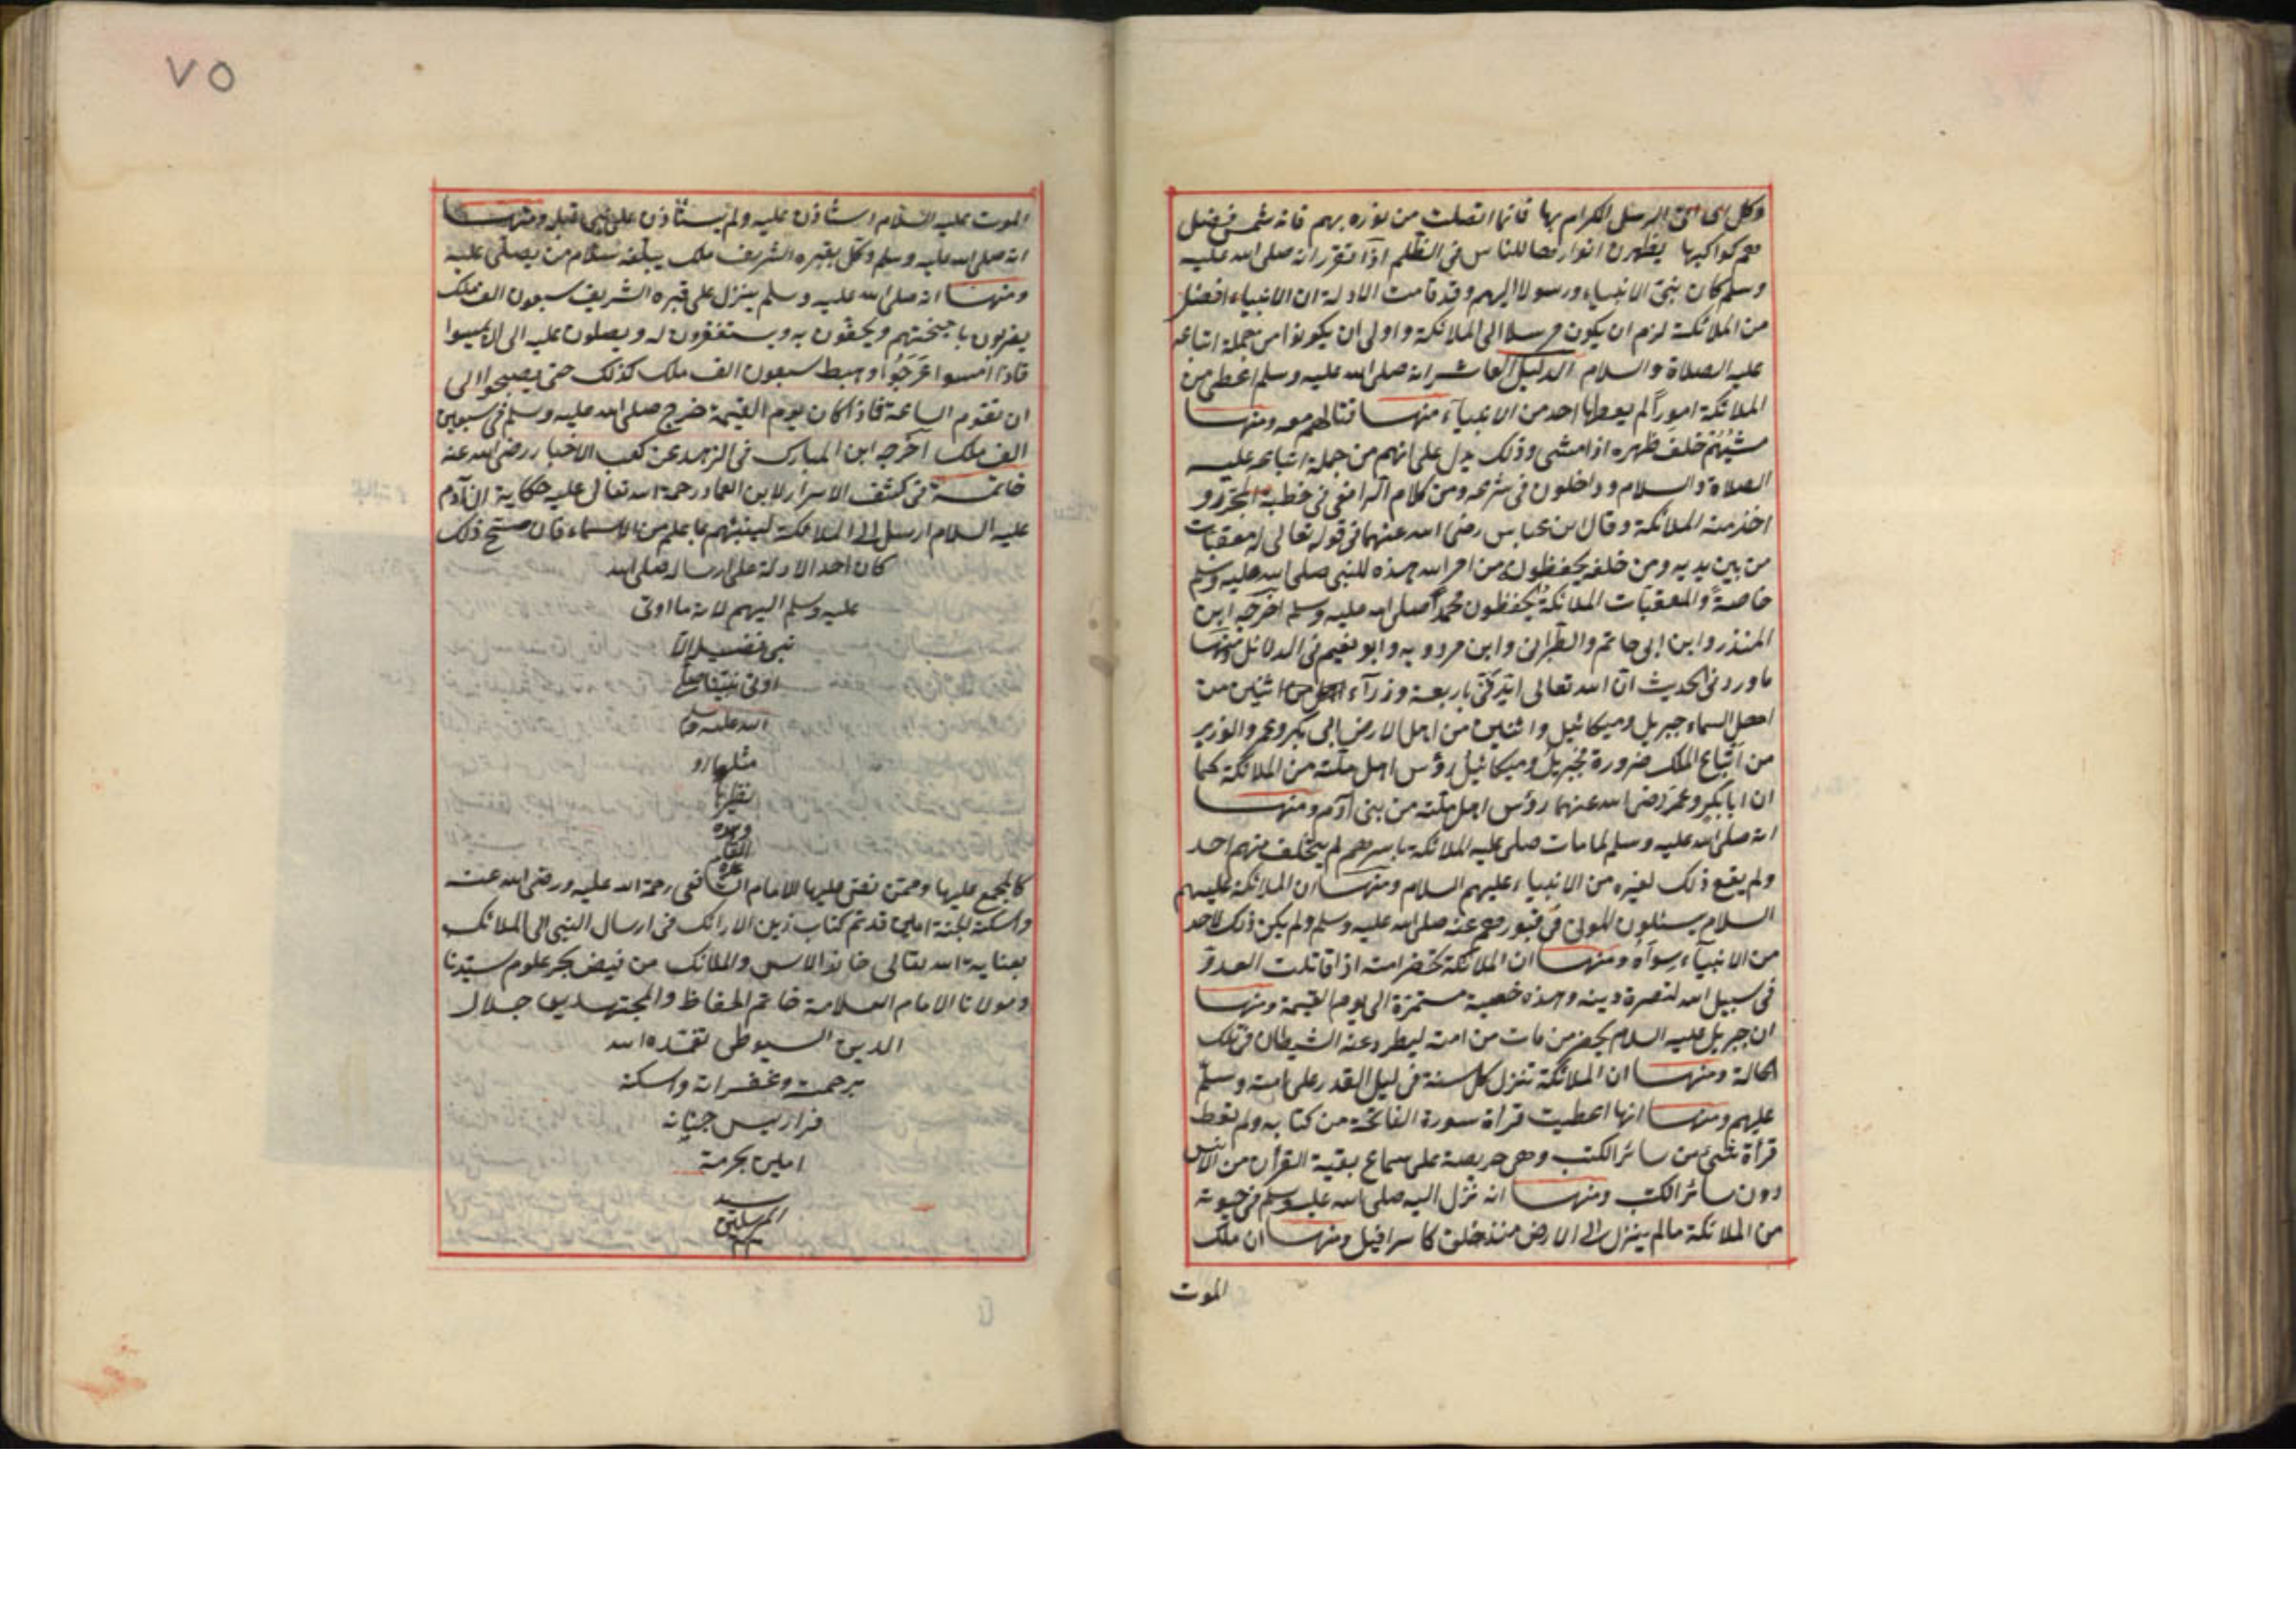 وكل آي اتى الرسل الكرام بها فانما اتصلت من نوره بهم فانه شمس فضل
هم كواكبها يظهرن انوارها للناس فى الظلم اذا تقرر انه صلى الله عليه
وسلم كان نبى الانبياء ورسولا اليهم وقد قامت الادلة ان الانبياء افضل
من الملائكة لزم ان يكون مرسلا الى الملائكة واولى ان يكونوا من جملة اتباعه
عليه الصلاة والسلام الدليل العاشر انه صلى الله عليه وسلم اعطى من
الملائكة امورا لم يعطها احد من الانبياء منها قتالهم معه ومنها
مشيهم خلف ظهره اذا مشى وذلك يدل على انهم من جملة اتباعه عليه
الصلاة والسلام وداخلون فى شرعه ومن كلام الرافعى فى خطبة المحرر و
اخذ منه الملائكة وقال ابن عباس رضى الله عنهما فى قوله تعالى له معقبات
من بين يديه ومن خلفه يحفظونه من امر الله هذه للنبى صلى الله عليه وسلم
خاصة والمعقبات الملائكة يحفظون محمدا صلى الله عليه وسلم اخرجه ابن
المنذر وابن ابى حاتم والطبرانى وابن مردويه وابو نعيم فى الدلائل ومنها
ما ورد فى الحديث ان الله تعالى ايدنى باربعة وزرآء اثنين من
اهل السماء جبريل وميكائيل واثنين من اهل الارض ابى بكر وعمر والوزير
من اتباع الملك ضرورة فجبريل وميكائيل رؤس اهل ملته من الملائكة كما
ان ابا بكر وعمر رضى الله عنهما رؤس اهل ملته من بنى آدم ومنها
انه صلى الله عليه وسلم لما مات صلى عليه الملائكة باسرهم لم يتخلف منهم احد
ولم يقع ذلك لغيره من الانبياء عليهم السلام ومنها ان الملائكة عليهم
السلام يسئلون الموتى فى قبورهم عنه صلى الله عليه وسلم ولم يكن ذلك لاحد
من الانبيآء سواه ومنها ان الملائكة تحضر امته اذا قاتلت العدو
فى سبيل الله لنصرة دينه وهذه خصيصة مستمرة الى يوم القيمة ومنها
ان جبريل عليه السلام يحضر من مات من امته ليطرد عنه الشيطان فى تلك
الحالة ومنها ان الملائكة تنزل كل سنة فى ليل القدر على امته وسلم
عليهم ومنها انها اعطيت قرأة سورة الفاتحة من كتابه ولم تعط
قرأة شئ من سائر الكتب وهى حريصة على سماع بقية القرأن من الانس
دون سائر الكتب ومنها انه نزل اليه صلى الله عليه وسلم فى حيوته
من الملائكة مالم ينزل الى الارض منذ خلق كاسرافيل ومنها ان ملك
الموت
٧٥
الموت عليه السلام استأذن عليه ولم يستأذن على نبى قبله ومنها
انه صلى الله عليه وسلم وكل بقبره الشريف ملك يبلغه سلام من يصلى عليه
ومنها انه صلى الله عليه وسلم ينزل على قبره الشريف سبعون الف ملك
يضربون باجنحتهم ويحفون به ويستغفرون له ويصلون عليه الى ان يمسوا
فاذا امسوا عرجوا وهبط سبعون الف ملك كذلك حتى يصبحوا الى
ان تقوم الساعة فاذا كان يوم القيمة خرج صلى الله عليه وسلم فى سبعين
الف ملك اخرجه ابن المبارك فى الزهد عن كعب الاخبار رضى الله عنه
خاتمة فى كشف الاسرار لابن العماد رحمه الله تعالى عليه حكاية ان آدم
عليه السلام ارسل الى الملائكة لينبئهم بما علم من الاسماء فان صح ذلك
كان احد الادلة على ارساله صلى الله
عليه وسلم اليهم لانه ما اوتى
نبى فضيلة الا
اوتى نبينا صلى
الله عليه وسلم
مثلها او
نظيرتها
وهذه
القاعدة
كالمجمع عليها وممن نص عليها الامام الشافعى رحمة الله عليه ورضى الله عنه
واسكنه الجنة امين قد تم كتاب تزيين الارائك فى ارسال النبى الى الملائك
بعناية الله تعالى خالق الانس والملائك من فيض بحر علوم سيدنا
ومولانا الامام العلامة خاتم الحفاظ والمجتهدين جلال
الدين السيوطى تغمده الله
برحمته وغفرانه واسكنه
فراديس جنانه
امين بحرمة
سيد
المرسلين